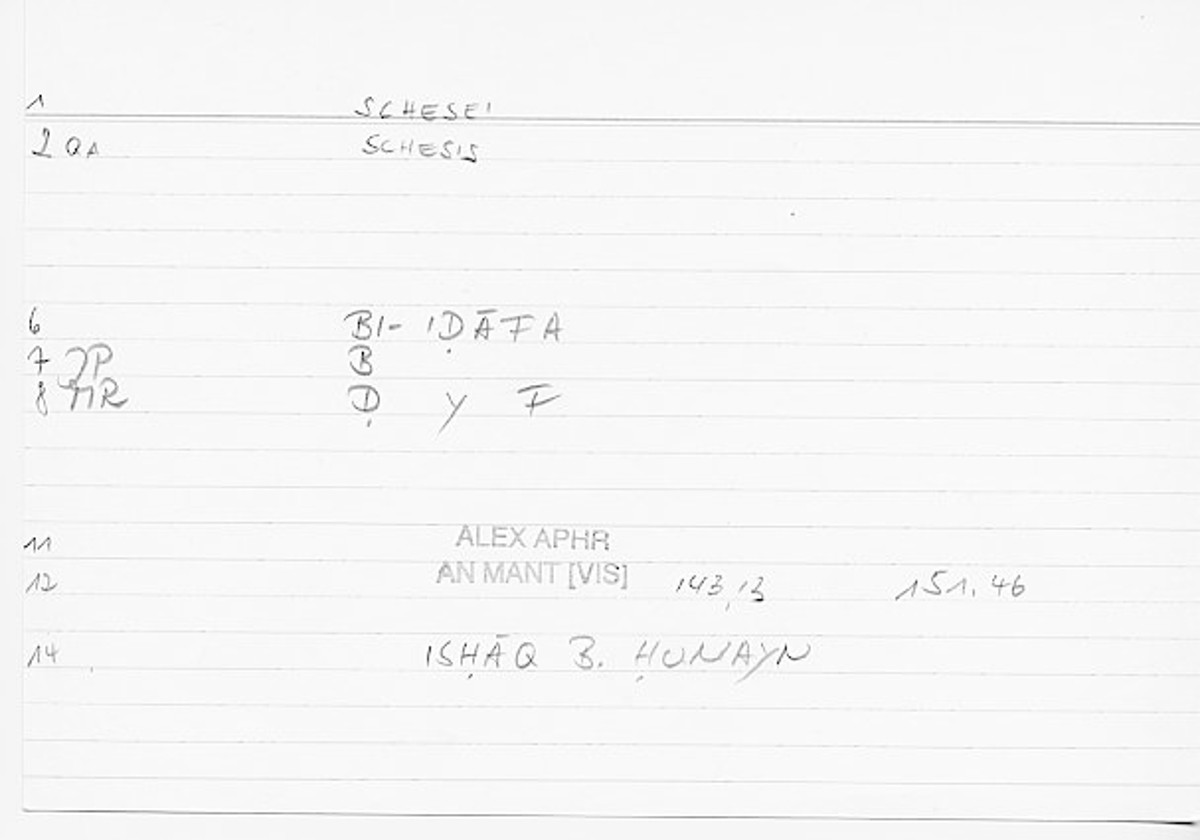 1 SCHESEI
2 QA SCHESIS
6 BI- IḌĀFA
7 JP B
8 MR Ḍ Y F
11 ALEX APHR
12 AN MANT [VIS] 143,13 151.46
14 ISḤĀQ B. ḤUNAYN